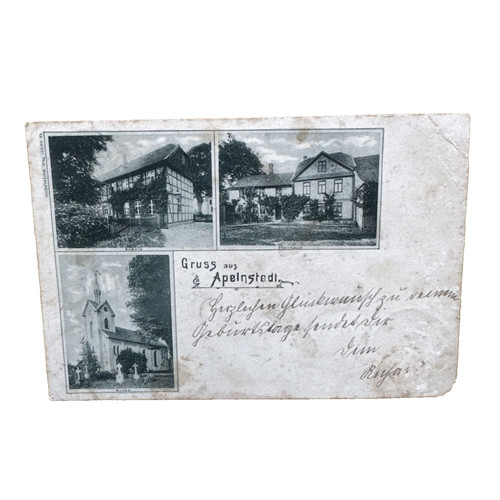 Gruss aus
Apelnstedt.
Schule
Kirche
Herzlichen Glückwunsch zu deinem
Geburtstage sendet Dir
Dein